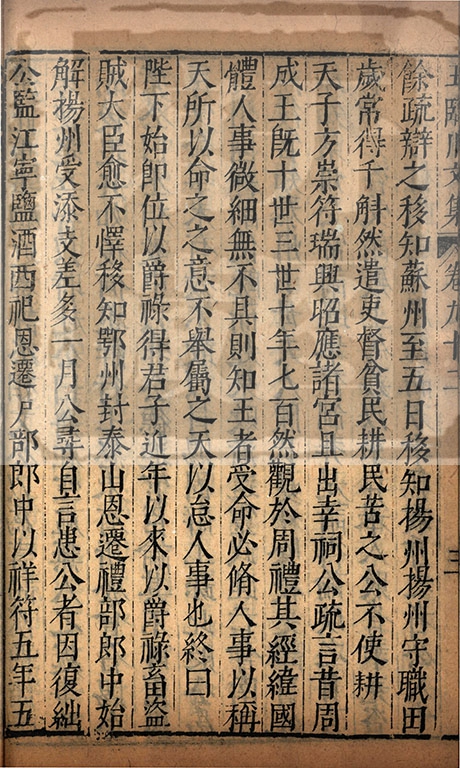 王臨川文集 卷九十二 三
餘疏辯之移知蘇州至五日移知揚州揚州守職田
歲常得千斛然遣吏督貧民耕民苦之公不使耕
天子方崇符瑞興昭應諸宮且出幸祠公疏言昔周
成王旣卜世三世十年七百然觀於周禮其經緯國
體人事微細無不具則知王者受命必脩人事以稱
天所以命之之意不舉屬之天以怠人事也終曰
陛下始卽位以爵祿得君子近年以來以爵祿畜盜
賊大臣愈不懌移知鄂州封泰山恩遷禮部郎中始
解楊州受添支差多一月公尋自言患公者因復絀
公監江寧鹽酒西祀恩遷戶部郎中以祥符五年五